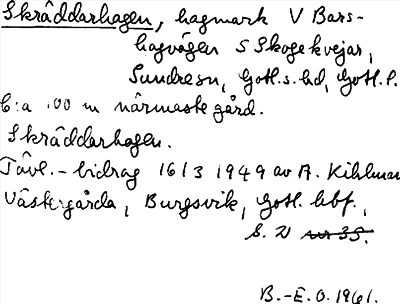 Skräddarhagen, hagmark V Bars-
hagvägen S Skogekvejar,
Sundresn, Gotl.s.hd, Gotl.l.
C:a 100 m närmaste gård.
Skräddarhagen.
Tävl.-bidrag 16/3 1949 av A. Kihlman
Västergårda, Burgsvik, Gotl. hbf.,
s. 2
B.-E.O. 1961.